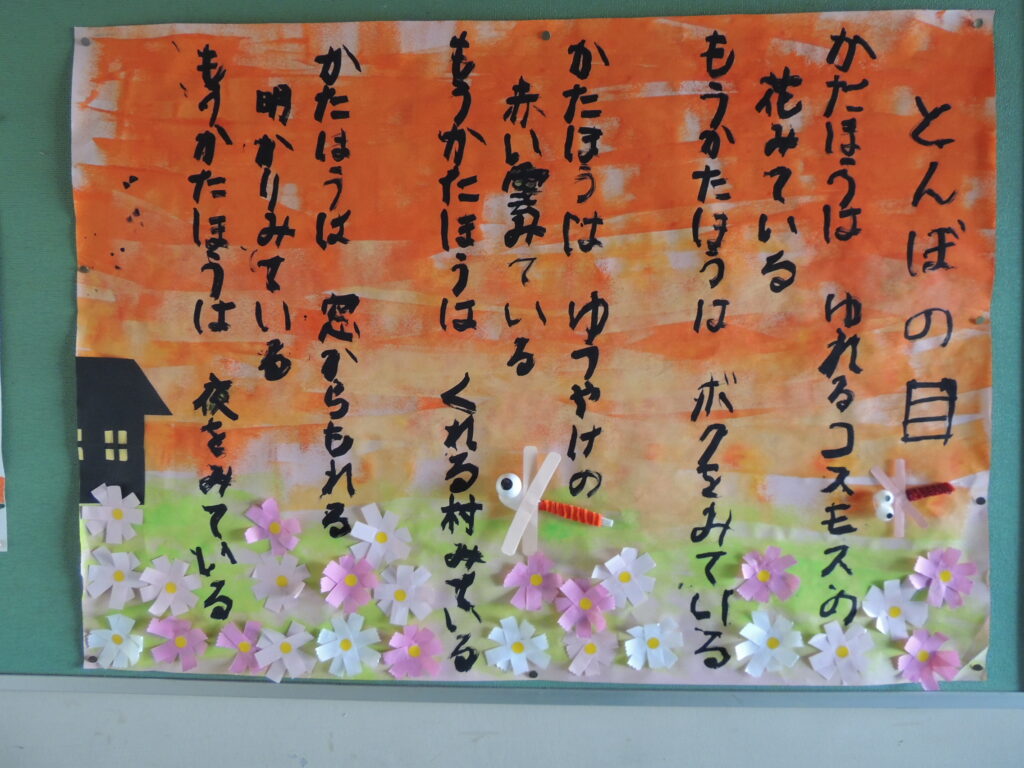 とんぼの目
かたほうは ゆれるコスモスの
花みている
もうかたほうは ボクをみている
かたほうは ゆうやけの
赤い雲みている
もうかたほうは くれる村みている
かたほうは 窓からもれる
明かりみている
もうかたほうは 夜をみている